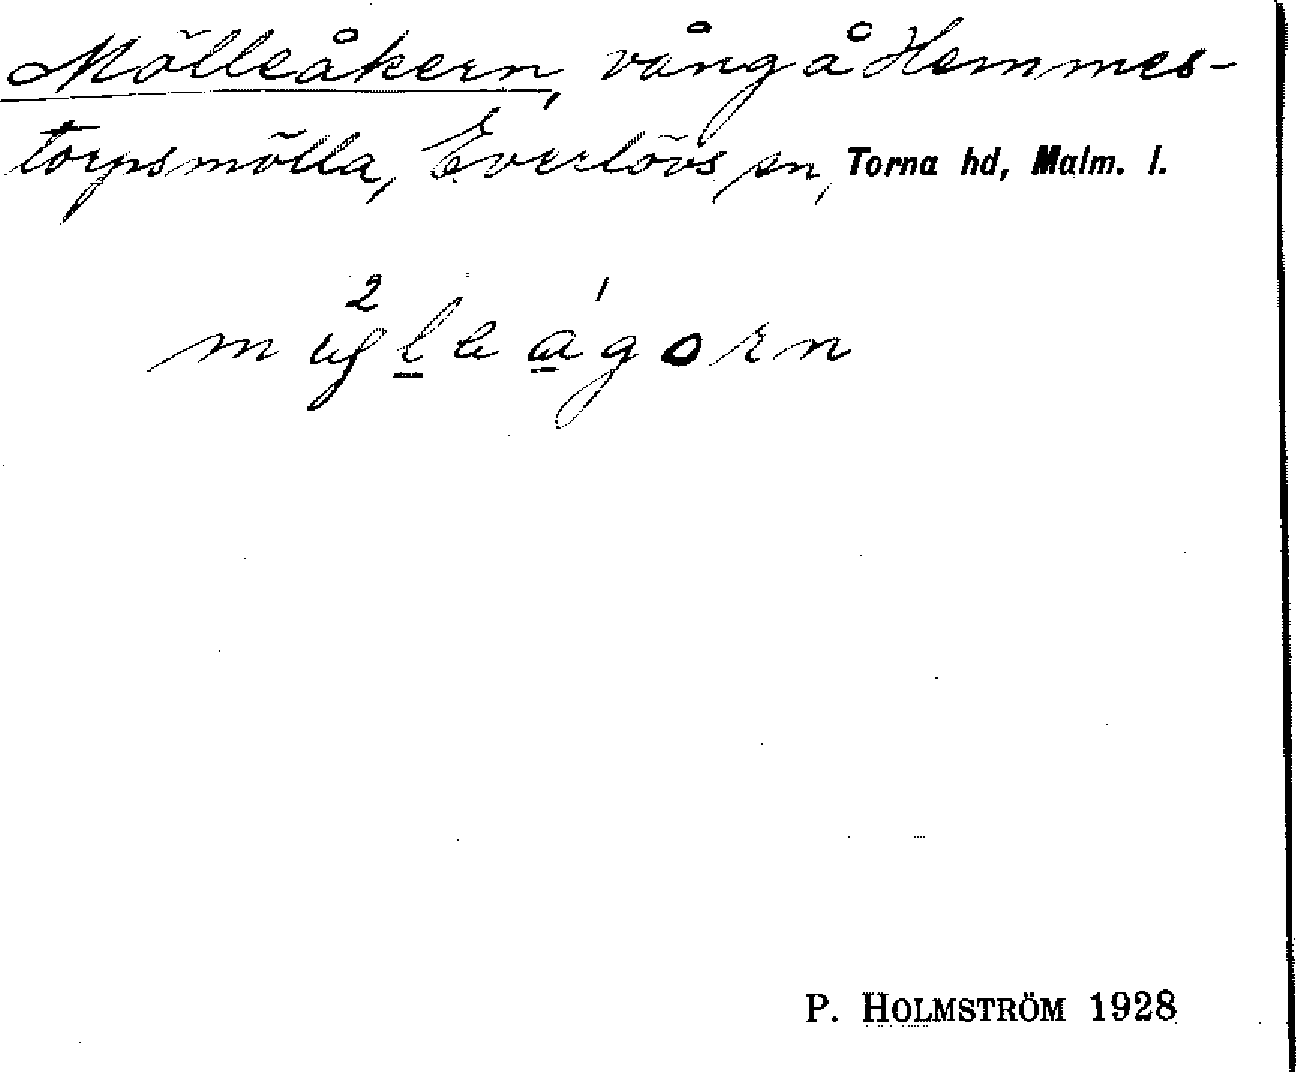 Mölleåkern, vång å Hemmes-
torpsmölla, Everlövs sn, Torna hd, Malm. l.
P. HOLMSTRÖM 1928